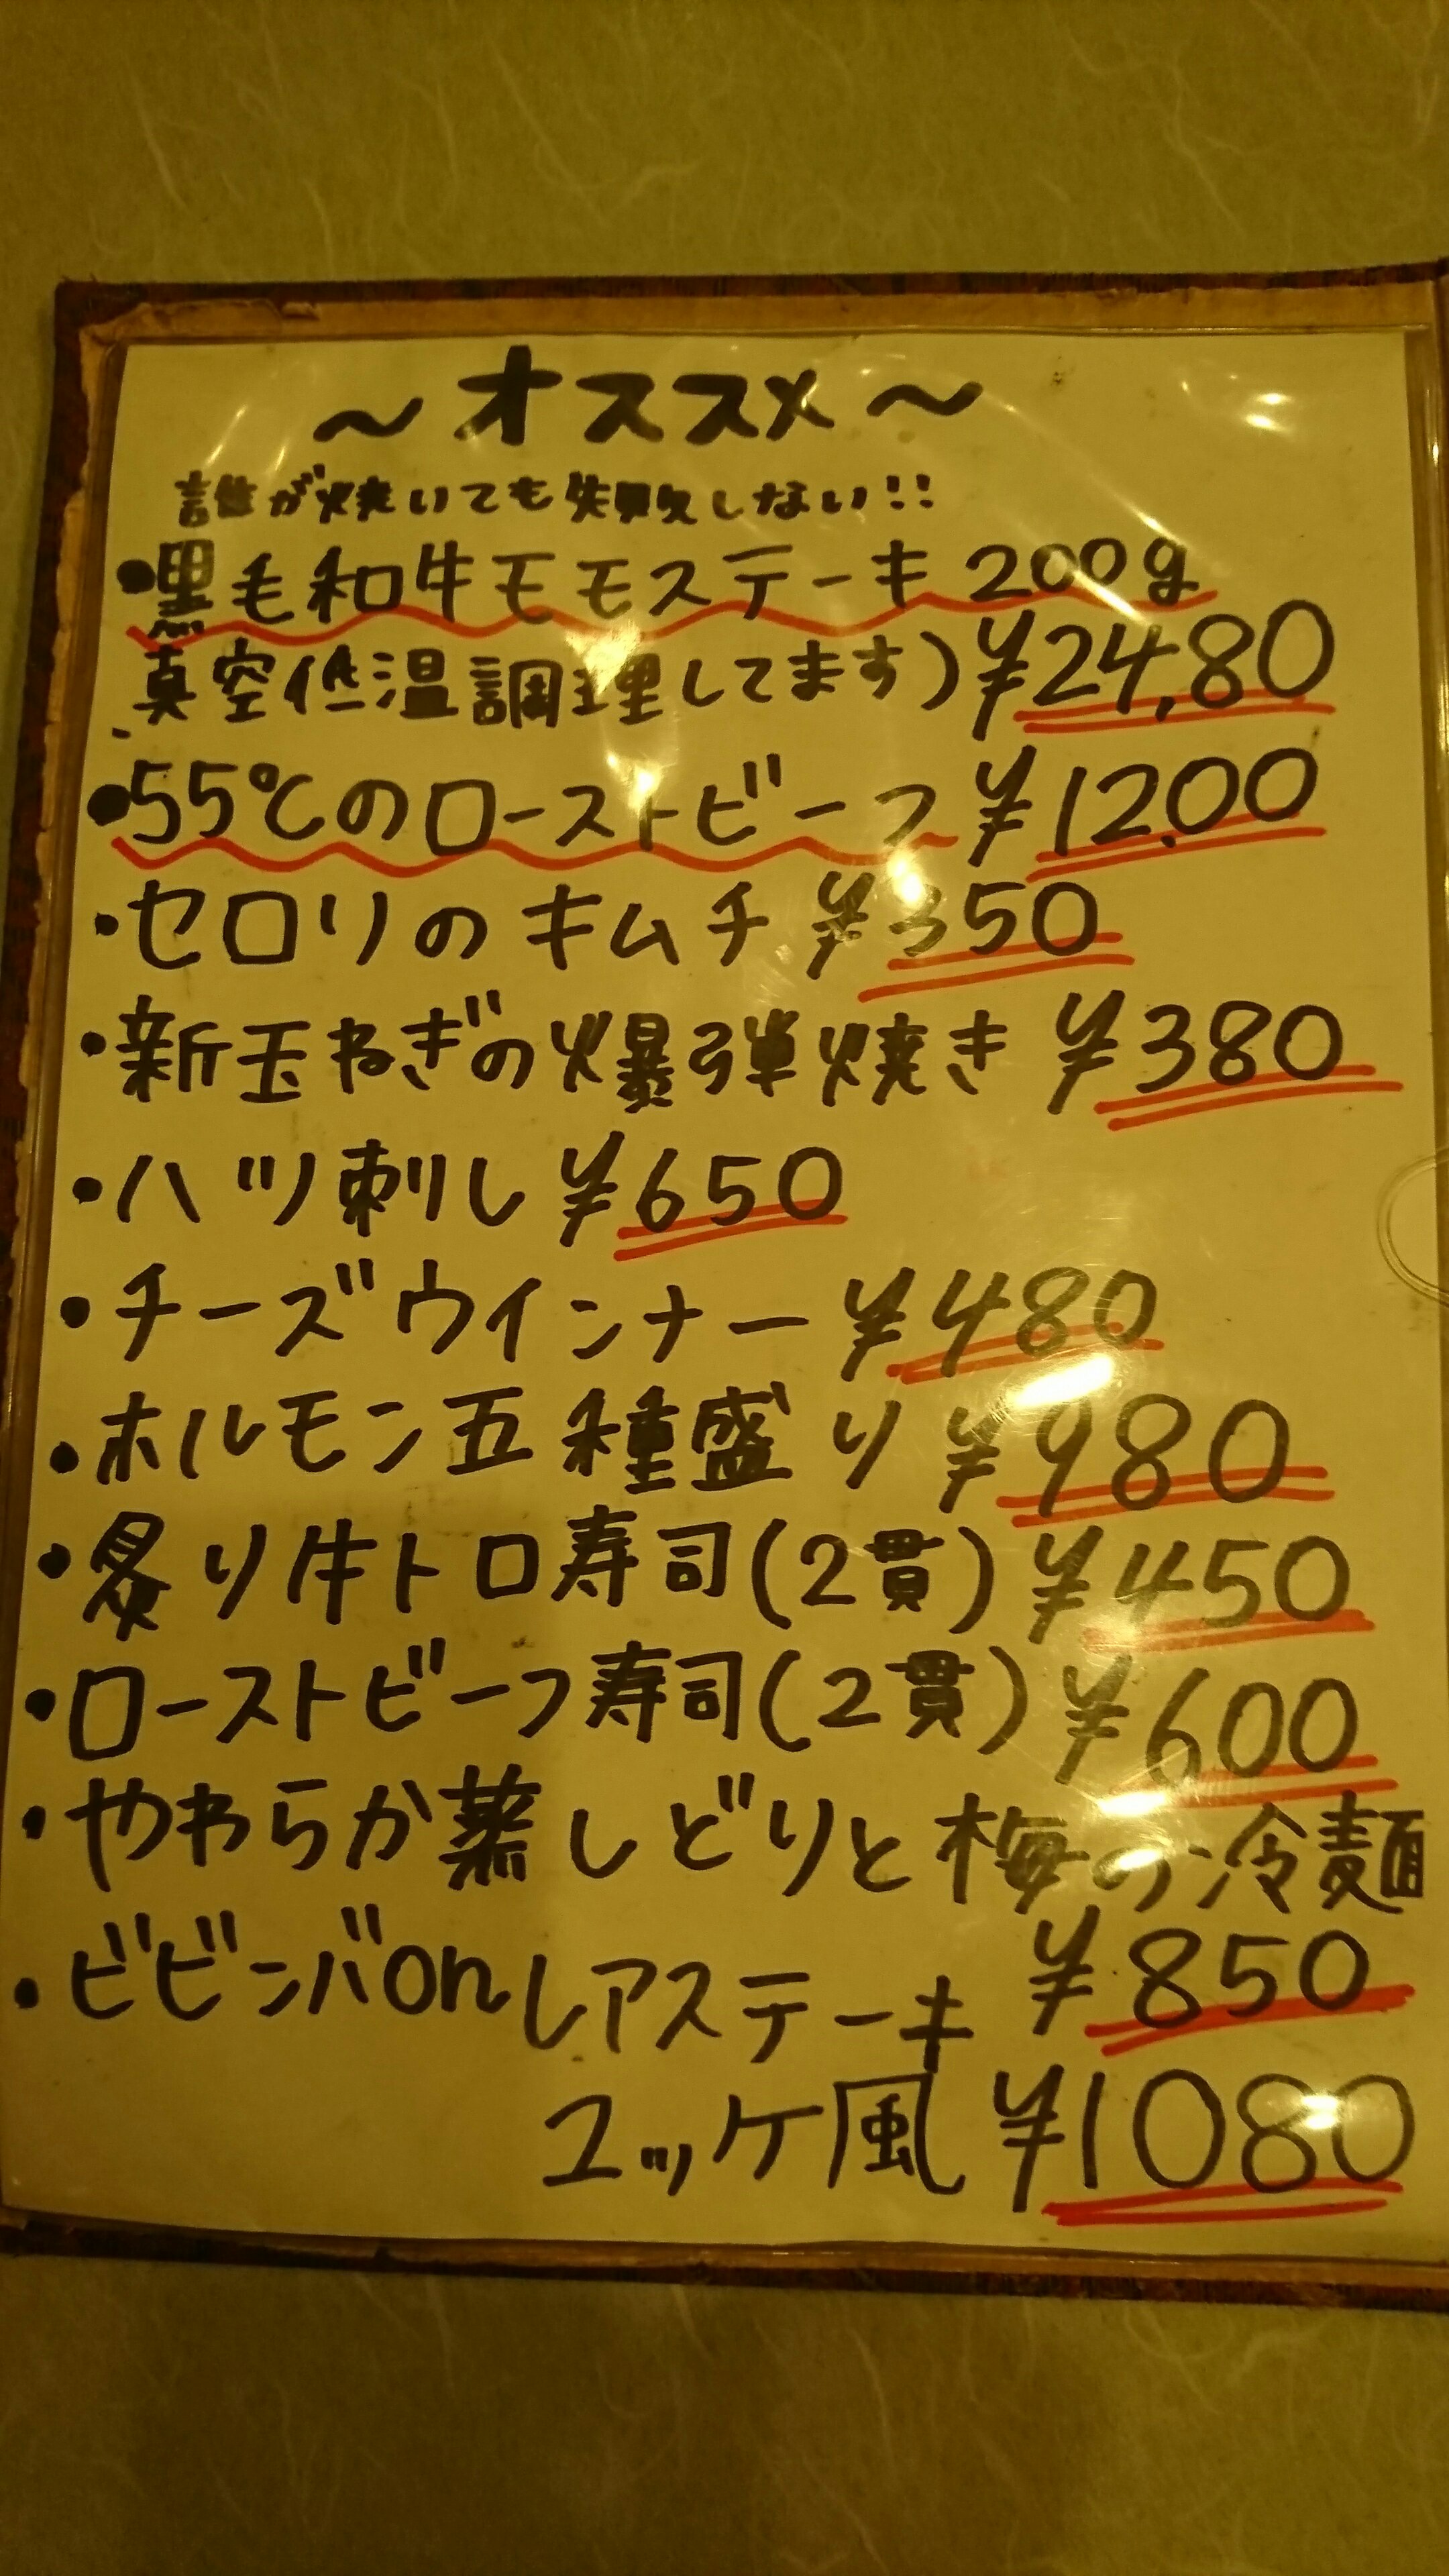 ～オススメ～
誰が焼いても失敗しない!!
・黒毛和牛モモステーキ 200g
真空低温調理してます) ¥24,80
・55℃のローストビーフ ¥12,00
・セロリのキムチ ¥350
・新玉ねぎの爆弾焼き ¥380
・ハツ刺し ¥650
・チーズウインナー ¥480
・ホルモン五種盛り ¥980
・炙り牛トロ寿司(2貫) ¥450
・ローストビーフ寿司(2貫) ¥600
・やわらか蒸しどりと梅の冷麺
¥850
・ビビンバonレアステーキ
ユッケ風 ¥1080